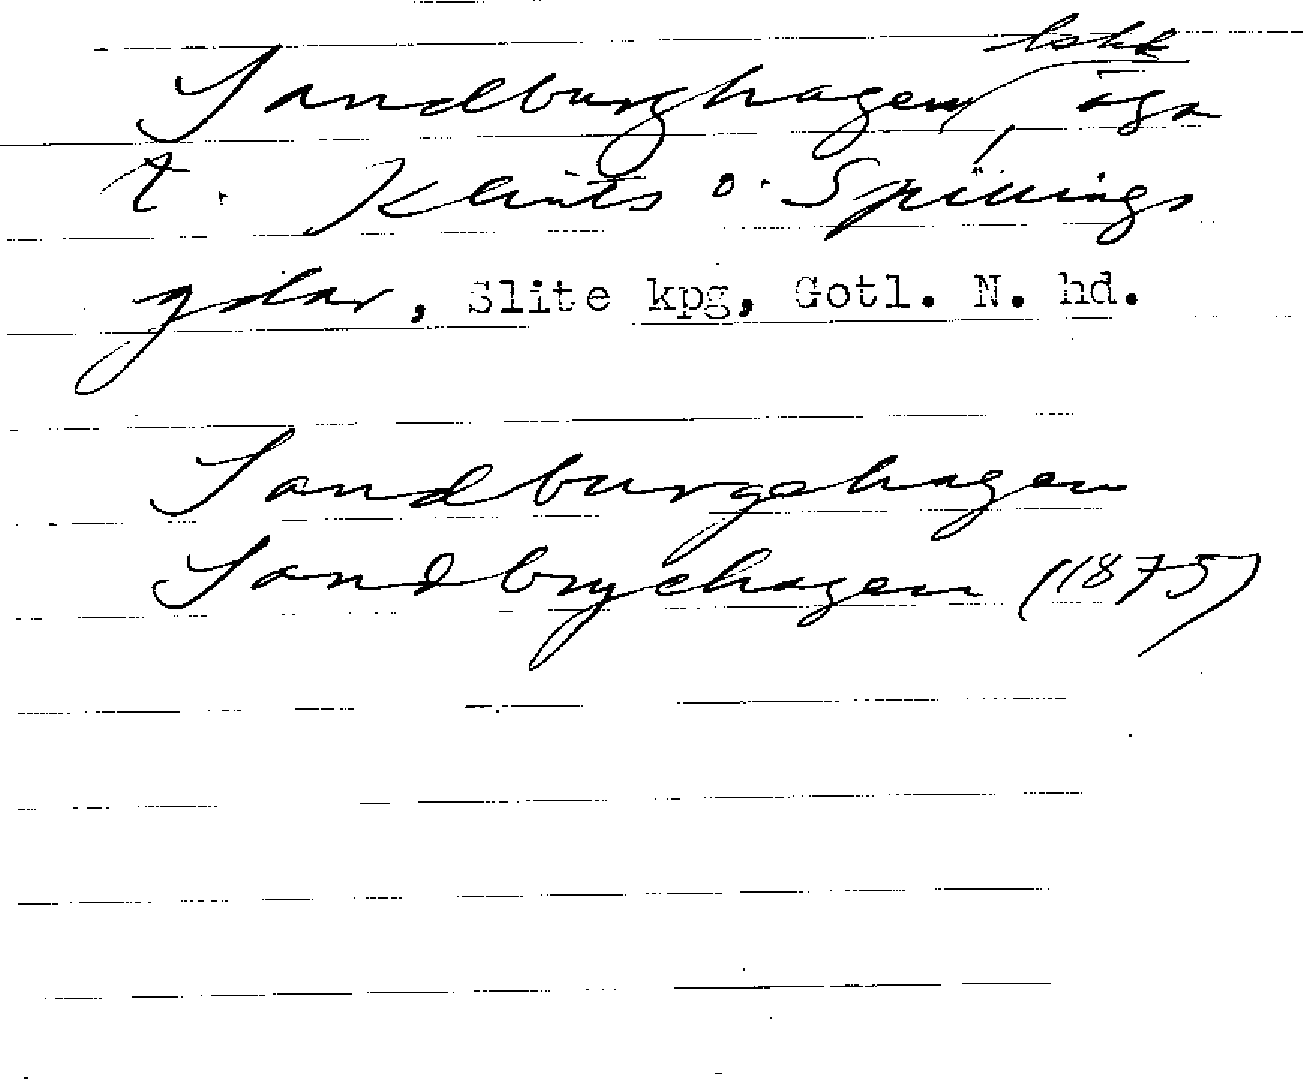 Sandburghagen, bskk ägn
t. Klints o. Spillings
gdar, Slite kpg, Gotl. N. hd.
Sandburgehagen
Sandbryehagen (1875)